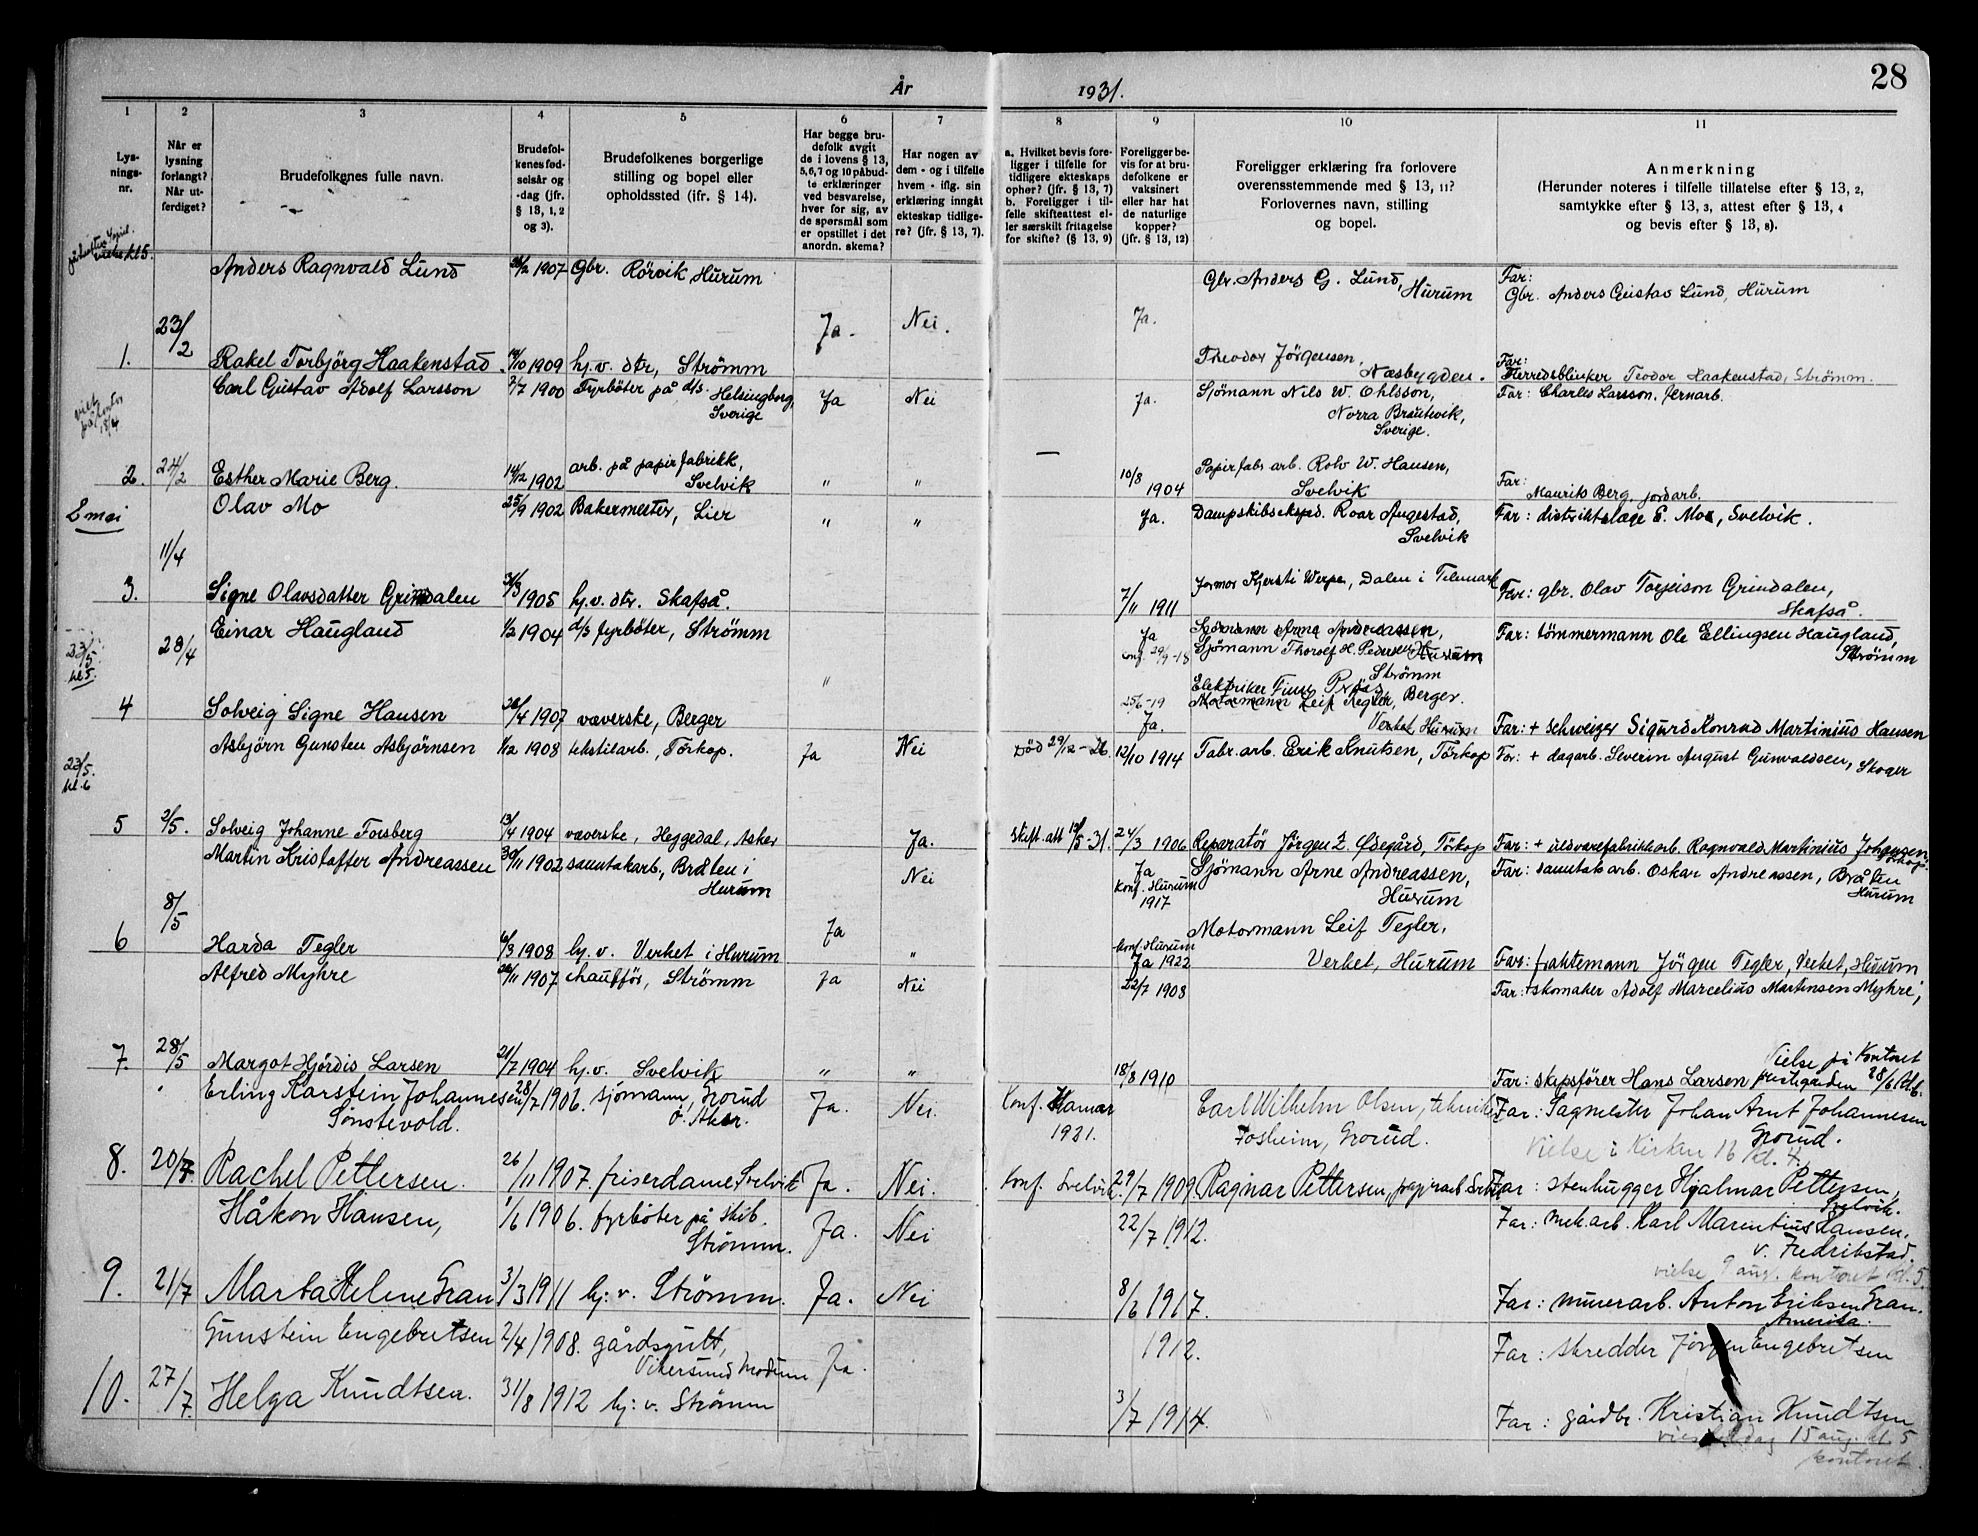 28
År 1931.
1 2 3 4 5 6 7 8 9 10 11
Lys-
nings-
nr.
Når er
lysning
forlangt?
Når ut-
ferdiget?
Brudefolkenes fulle navn.
Brudefol-
kenes fød-
selsår og
-dag (jfr.
§ 13, 1, 2
og 3).
Brudefolkenes borgerlige
stilling og bopel eller
opholdssted (ifr. § 14).
Har begge bru-
defolk avgit
de i lovens § 13,
5, 6, 7 og 10 påbud-
te erklæringer
ved besvarelse,
hver for sig, av
de spørsmål som
er opstillet i det
anordn. skema?
Har nogen av
dem - og i tilfelle
hvem - iflg. sin
erklæring inngåt
ekteskap tidlige-
re? (jfr. § 13, 7).
a. Hvilket bevis fore-
ligger i tilfelle for
tidligere ekteskaps
ophør? (jfr. § 13, 7)
b. Foreligger i til-
felle skifteattest el-
ler særskilt fritagelse
for skifte? (§ 13, 9)
Foreligger be-
vis for at bru-
defolkene er
vaksinert
eller har hat
de naturlige
kopper?
(jfr. § 13, 12)
Foreligger erklæring fra forlovere
overensstemmende med § 13, 11?
Forlovernes navn, stilling
og bopel.
Anmerkning
(Herunder noteres i tilfelle tillatelse efter § 13, 2,
samtykke efter § 13, 3, attest efter § 13, 4
og bevis efter § 13, 8).
kl 5.
Anders Ragnvald Lund /2 1907 Gbr. Rörvik, Hurum
Gbr. Anders G. Lund, Hurum
Far:
Gbr. Anders Gustav Lund, Hurum
23/2 Ja. Nei. Ja.
1. Rakel Torbjörg Haakenstad /10 1909 hj.v. dtr, Strömm
Theodor Jörgensen,
Næsbygden.
Far:
Herredsblinker Teodor Haakenstad, Strömm.
Carl Gustav Adolf Larsson 2/7 1900 Fyrböter på d/s. Helsingborg,
Sverige
Ja Nei Ja.
Sjömann Nils W. Ohlsson,
Norra
Sverige.
Far: Charles Larsson, Jernarb.
18/4
2. 24/2 Esther Marie Berg. 14/12 1902 arb. på papirfabrikk,
Svelvik
" " — 10/8 1904
Papirfabr arb. Rolv W. Hansen,
Svelvik
Far:
Maurits Berg jordarb.
2 mai
Olav Mo 25/9 1902 Bakermester, Lier " " Ja.
Dampskibseksped. Roar Angestad,
Svelvik
Far: distriktslæge E. Moe, Svelvik.
11/4
3. Signe Olavsdatter Grindalen 31/3 1905 hj.v. dtr. Skafså.
7/11 1911
Formor Kjersti Werpe, Dalen i Telemark
Far: gbr. Olav Torjeison Grindalen,
Skafså.
23/5
kl 5.
28/4
Einar Haugland 1/2 1904 d/s fyrböter, Strömm
Ja
konf. 29/9-18
Sjömann Arne Andreassen,
Sjömann Thorolf H. Pedersen Hurum
Strömm
Far: tömmermann Ole Ellingsen Haugland,
Strömm
"
4 Solveig Signe Hansen /4 1907 væverske, Berger
25/6-19
Ja.
Elektriker Finn Berger.
Motormann Leif Tegler,
Verket Hurum
Far: + schweizer Sigurd Konrad Martinius Hansen
23/5.
kl. 6
Asbjörn Gunsten Asbjörnsen 1/12 1908 tekstilarb., Törkop. Ja Nei
Död 29/12 - 26. 12/10 1914 Fabr. arb. Erik Knutsen, Törkop
Far: + dagarb. Severin August Gunvaldsen, Skoger
5 2/5. Solveig Johanne Forsberg 13/4 1904 væverske, Heggedal, Asker Ja.
Skift. att /5-31. 24/3 1906 Reparatör Jörgen L Ødegård, Törkop
Far: + uldvarefabrikkarb. Ragnvald Martinius Johansen, Törkop.
Martin Kristoffer Andreassen 30/11 1902 samtakarb., Bråten i
Hurum
Nei
Ja
Konf. Hurum
1917
Sjömann Arne Andreassen,
Hurum
Far: samtak arb. Oskar Andreassen, Bråten
Hurum
8/5
6 Harda Tegler 6/3 1908 hj. v. Verket i Hurum Ja "
Konf. Hurum
Ja 1922
Motormann Leif Tegler,
Verket, Hurum
Far: fraktemann Jörgen Tegler, Verket, Hurum
Alfred Myhre /11 1907 chaufför, Strömm Ja Nei 22/7 1908
Far: + skomaker Adolf Marcelius Martinsen Myhre,
7. 28/5 Margot Hjördis Larsen 21/7 1904 hj. v. Svelvik " " 18/8 1910
Vielse på Kontoret
Far: skipsfører Hans Larsen prestegården 28/6 kl 6.
Erling Karstein Johannessen 28/7 1906. sjömann, Grorud
Sönstevold. Ö. Aker.
Ja. Nei.
Konf. Hamar
1921.
Carl Wilhelm Olsen, tekniker
Fosheim, Grorud.
Far: Sagmester Johan Arnt Johannesen
Grorud.
Vielse i Kirken 16 kl. 4.
8. 20/7 Rachel Pettersen. 26/11 1907. friserdame Svelvik Ja. Nei.
Konf. Svelvik. 29/7 1909. Ragnar Pettersen, papirarb.
Far: stenhugger Hjalmar Pettersen,
Svelvik.
Håkon Hansen, 1/6 1906. fyrböter på skib.
Strömm.
Ja. Nei 22/7 1912.
Far: mek. arb. Karl Marentius Hansen.
v. Fredrikstad
vielse 9 aug. kontoret kl. 5
9. 21/7 Marta Helene Gran 3/3 1911 hj. v. Strömm. Ja. Nei 8/6 1917.
Far: murerarb. Anton Eriksen Gran.
Amerika.
Gunstein Engebretsen 2/4 1908. gårdsgutt,
Vikersund Modum
Ja. 1912.
Far: skredder Jörgen Engebretsen
10. 27/7. Helga Knudtsen. 31/8 1912 hj: v. Strömm 3/7 1914.
Far: gårdbr. Kristian Knudtsen
15 aug. kl. 5
kontoret.